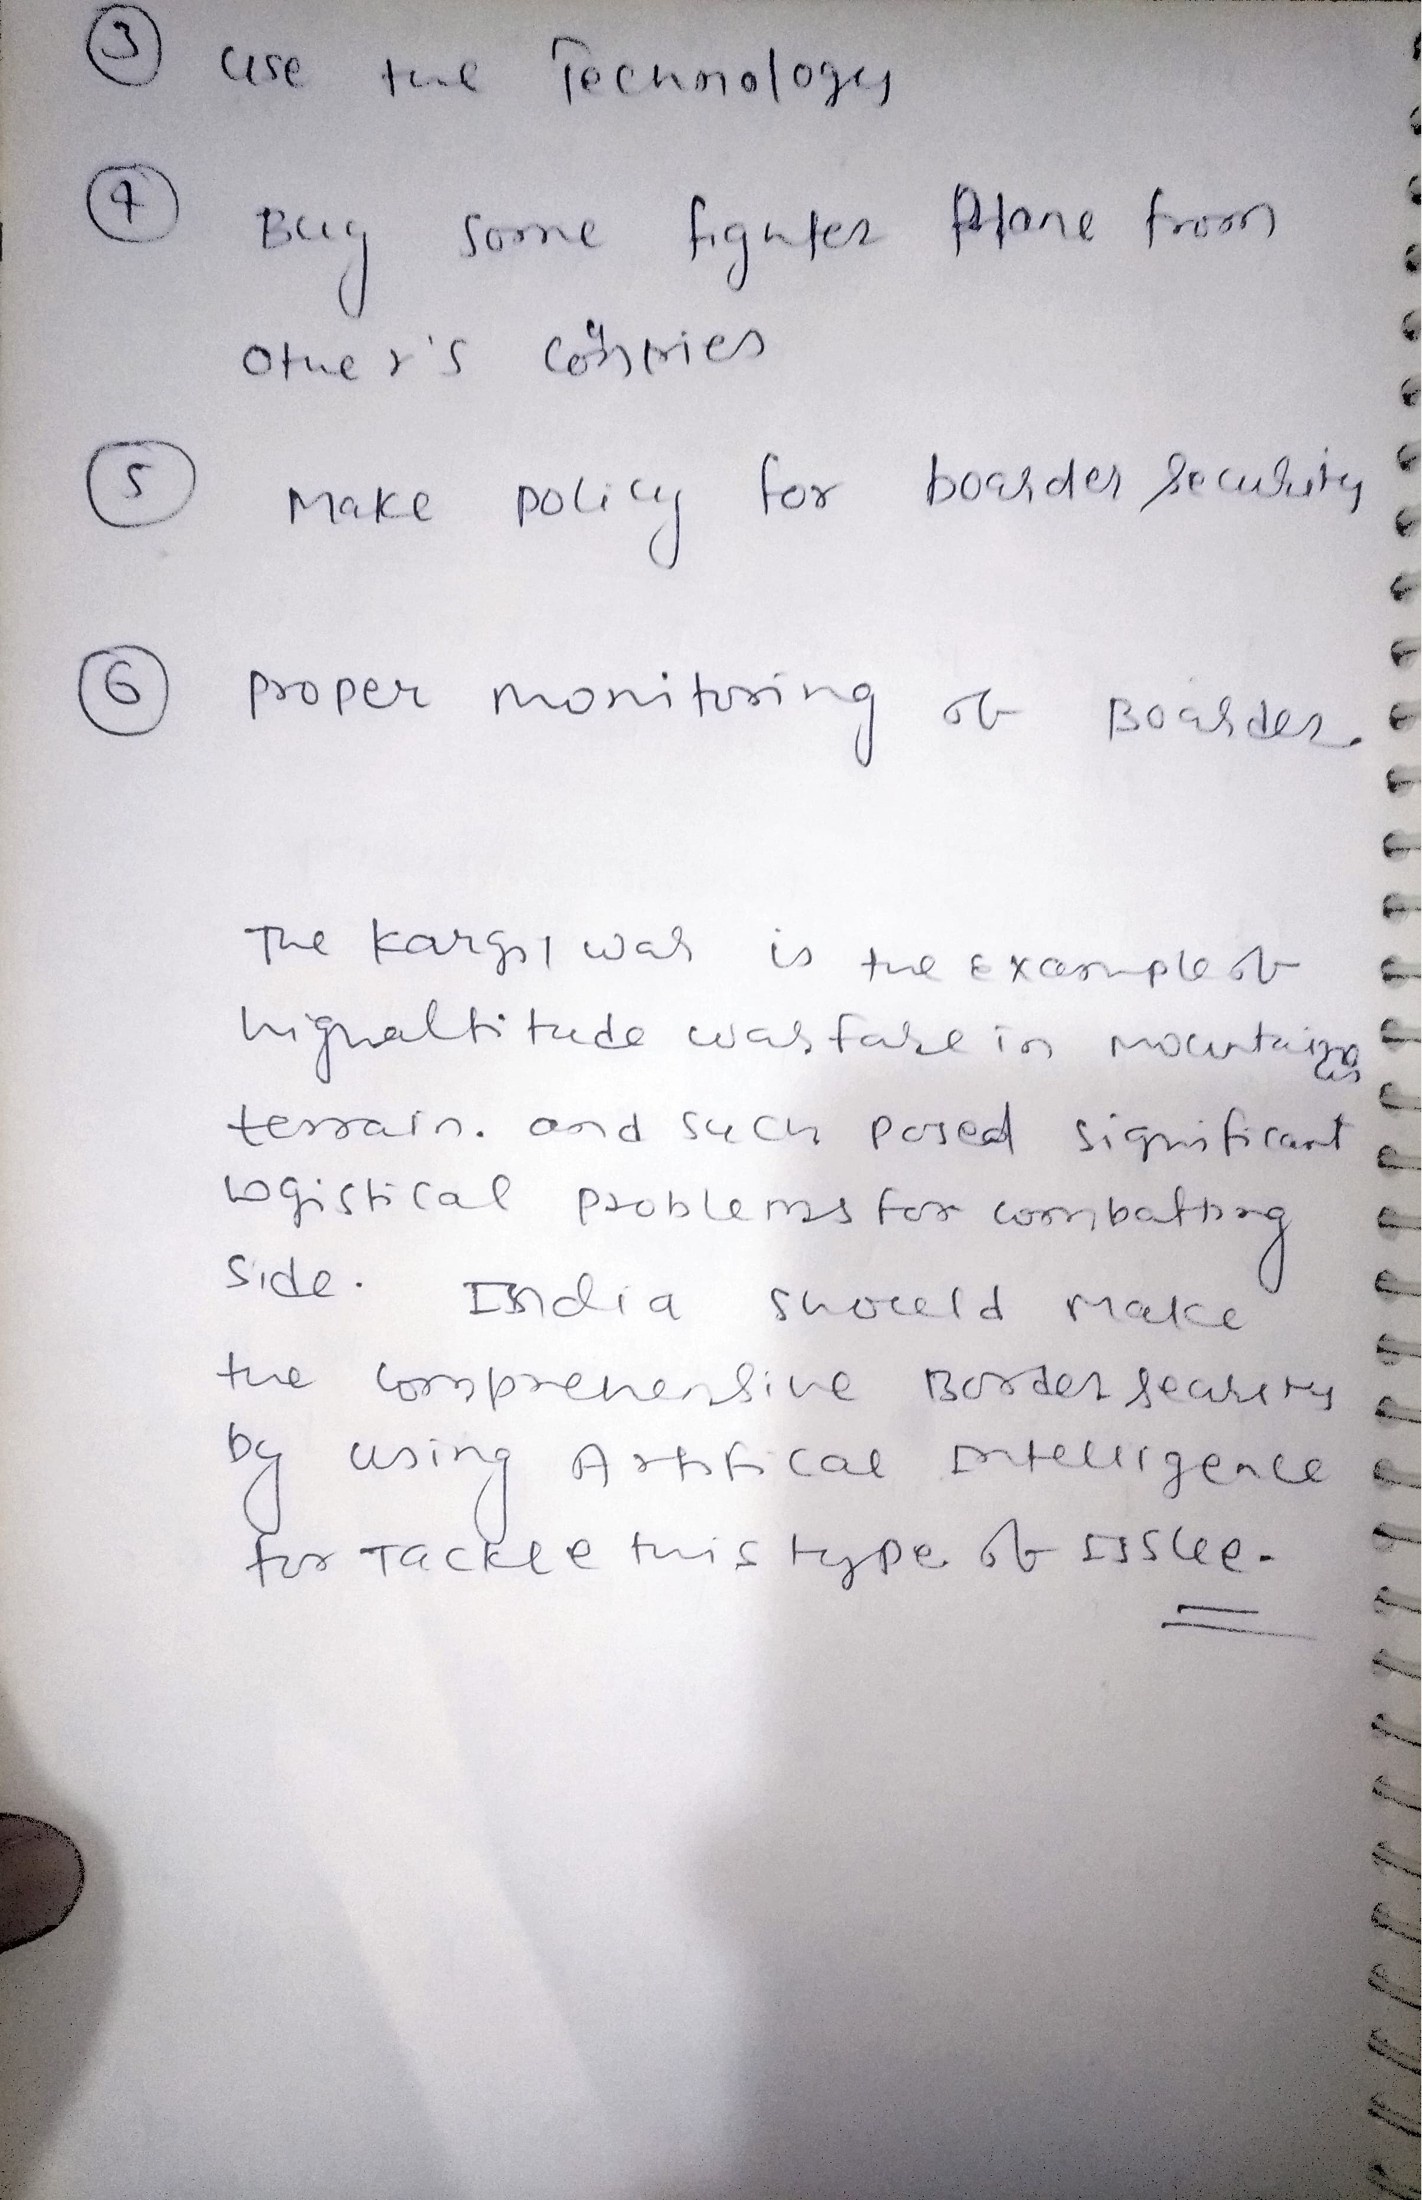 ③ Use the Technology
④ Buy some fighter Plane from
Other's Countries
⑤ Make policy for boarder Security
⑥ Proper monitoring of Boarder.
The Kargil war is the Example of
high altitude warfare in mountainous
terrain. and such posed significant
logistical problems for combatting
side. India should make
the comprehensive Border security
by using Artifical Intelligence
for Tackle this type of Issue.